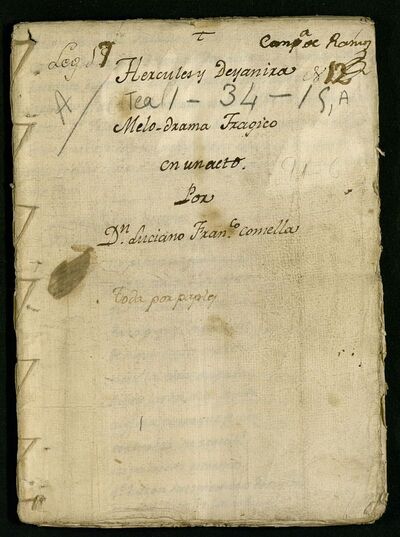 Campª de Ramos
Leg. 19
Hercules y Deyanira
12
A
Tea 1-34-15, A
Melo-drama Tragico
en un acto.
Por
Dn. Luciano Franco. Comella
Toda por papeles